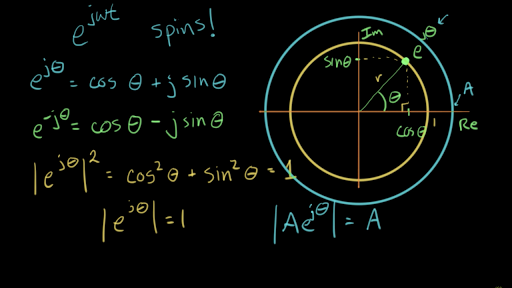 e^{jωt} spins!
e^{jθ} = cos θ + j sin θ
e^{-jθ} = cos θ - j sin θ
|e^{jθ}|² = cos² θ + sin² θ = 1
|e^{jθ}| = 1
|Ae^{jθ}| = A
Im
e^{jθ}
sinθ
r
θ
A
cosθ
1
Re